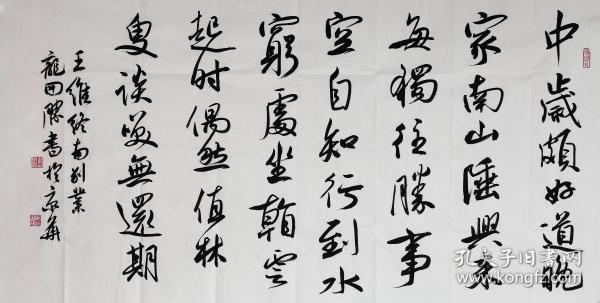 中歲頗好道晚
家南山陲興来
每獨往勝事
空自知行到水
窮處坐看雲
起时偶然值林
叟談笑無還期
王維終南别業
龍書於京華
孔夫子旧书网
www.kongfz.com